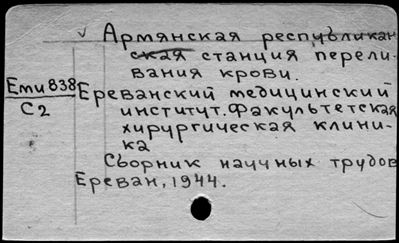 Армянская республикан
ская станция перели-
вания крови.
Ети 838
С2
Ереванский медицинский
институт. Факультетская
хирургическая клини-
ка
Сборник научных трудов
Ереван, 1944.